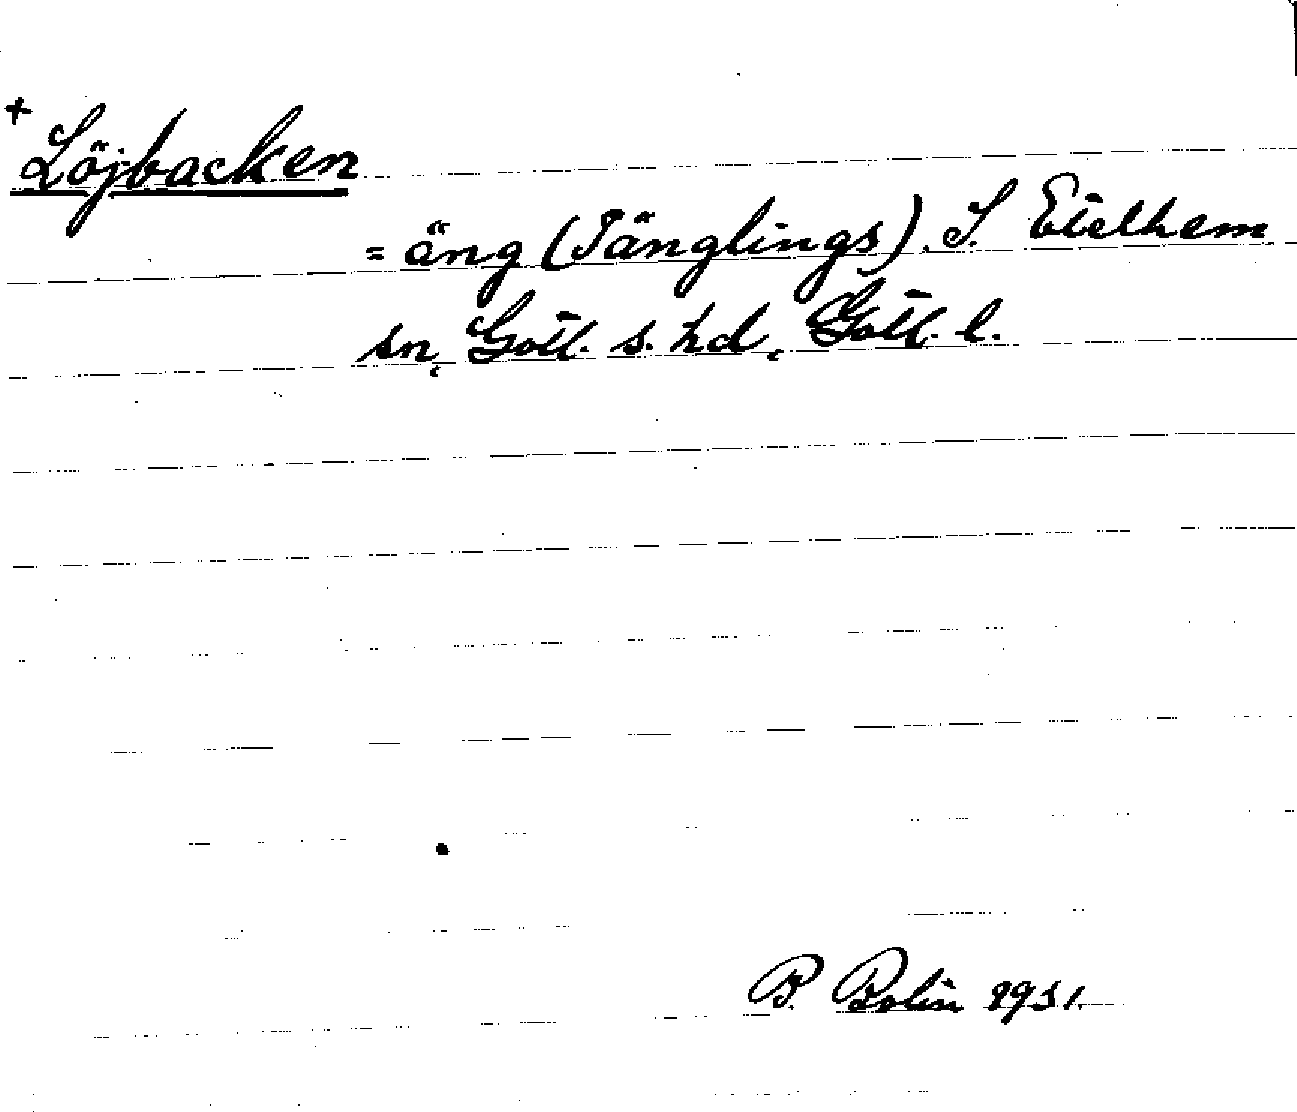 + Löjbacken
= äng (Tänglings). I. Etelhem
sn, Gotl. s. hd, Gotl. l.
B. Bolin 1931.